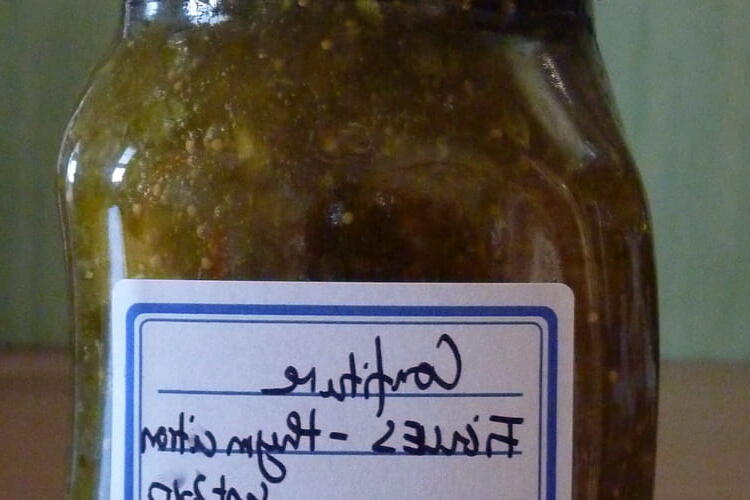 Confiture
FIGUES - thym citron